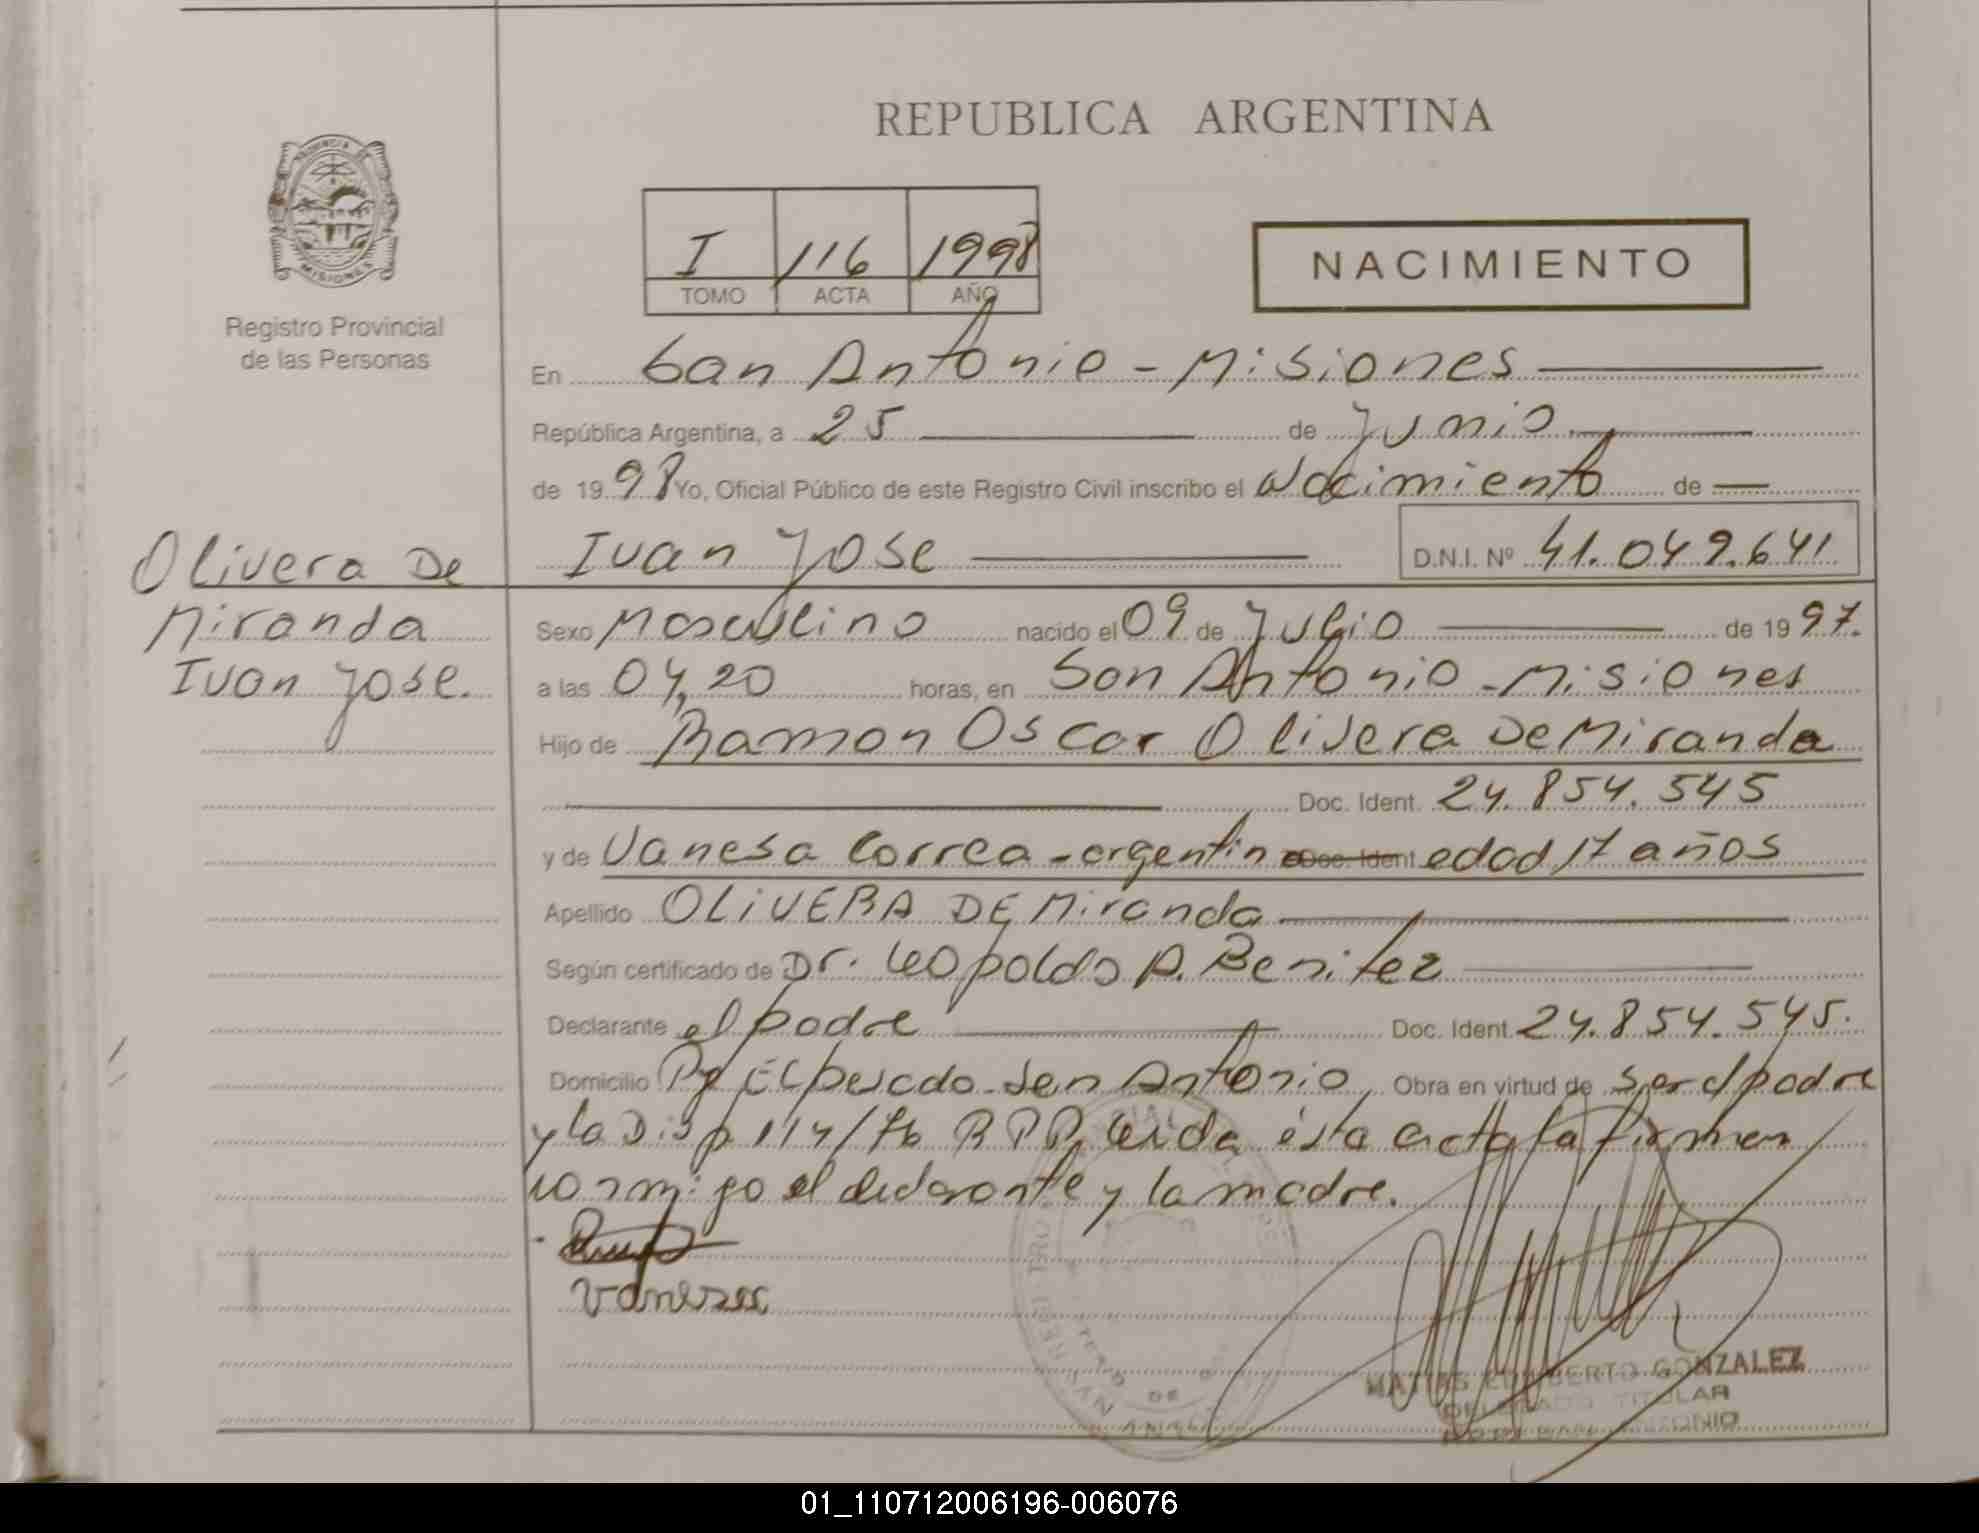 REPUBLICA ARGENTINA
PROVINCIA DE
MISIONES
Registro Provincial
de las Personas
I 116 1998
TOMO ACTA AÑO
NACIMIENTO
En San Antonio - Misiones
República Argentina, a 25 de Junio
de 1998 Yo, Oficial Público de este Registro Civil inscribo el Nacimiento de
Ivan Jose D.N.I. Nº 41.049.641.
Olivera De
Miranda
Ivan Jose.
Sexo Masculino nacido el 09 de Julio de 1997.
a las 04,20 horas, en San Antonio - Misiones
Hijo de Ramon Oscar Olivera De Miranda
Doc. Ident. 24.854.545
y de Vanesa Correa - argentina Doc. Ident edad 17 años
Apellido OLIVERA DE Miranda
Según certificado de Dr. Leopoldo A. Benitez
Declarante el padre Doc. Ident. 24.854.545.
Domicilio San Antonio, Obra en virtud de ser el padre
y la Disp 114/76 RPP, Leida ésta acta la firman
conmigo el declarante y la madre.
Vanesa
MATIAS EDILBERTO GONZALEZ
DELEGADO TITULAR
SAN ANTONIO
01_110712006196-006076